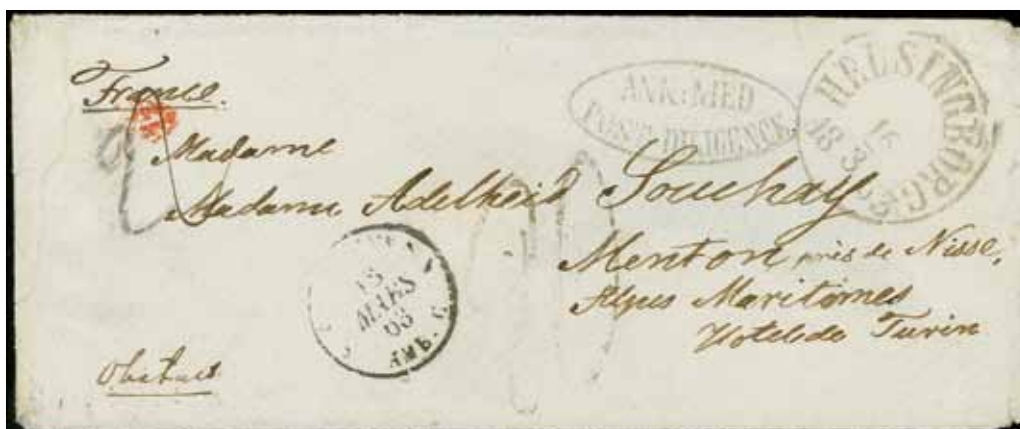 France.
ANK: MED
POST-DILIGENCE.
HELSINGBORG
16
3
18 63
Madame
Madame Adelheid Souchay
Menton près de Nisse,
Alpes Maritimes
Hotel de Turin
MARS
63
AMB. C.
Obetact